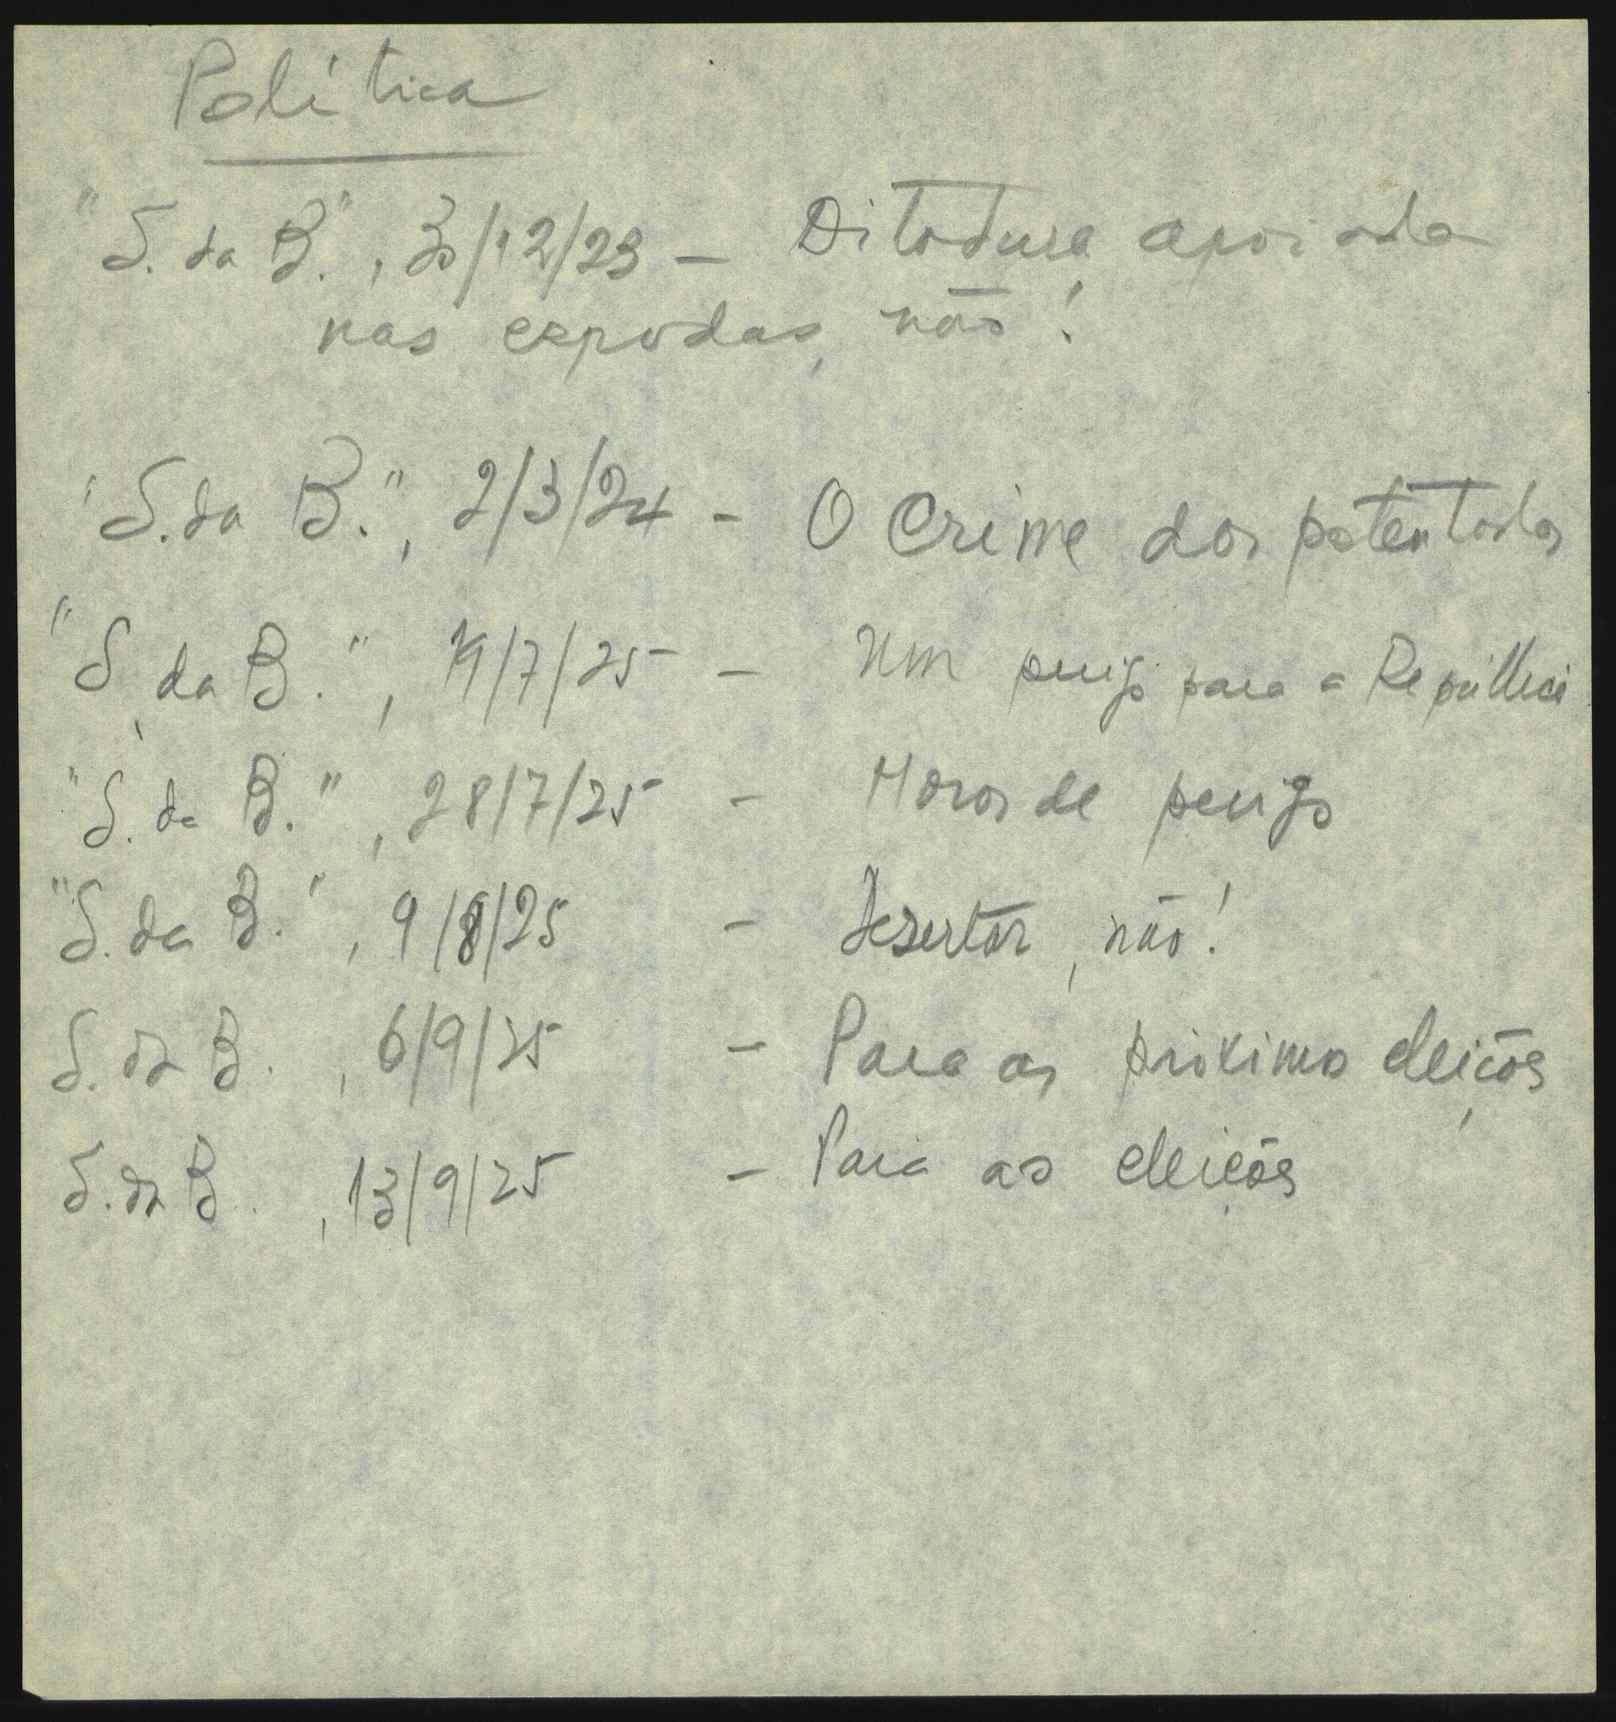 Política
"S. da B.", 30/12/23 - Ditadura apoiada
nas espadas, não!
"S. da B.", 2/3/24 - O Crime dos potentados
"S. da B.", 19/7/25 - Um perigo para a República
"S. da B.", 28/7/25 - Horas de perigo
"S. da B.", 9/8/25 - Desertar, não!
S. da B., 6/9/25 - Para as próximas eleições
S. da B., 13/9/25 - Para as eleições